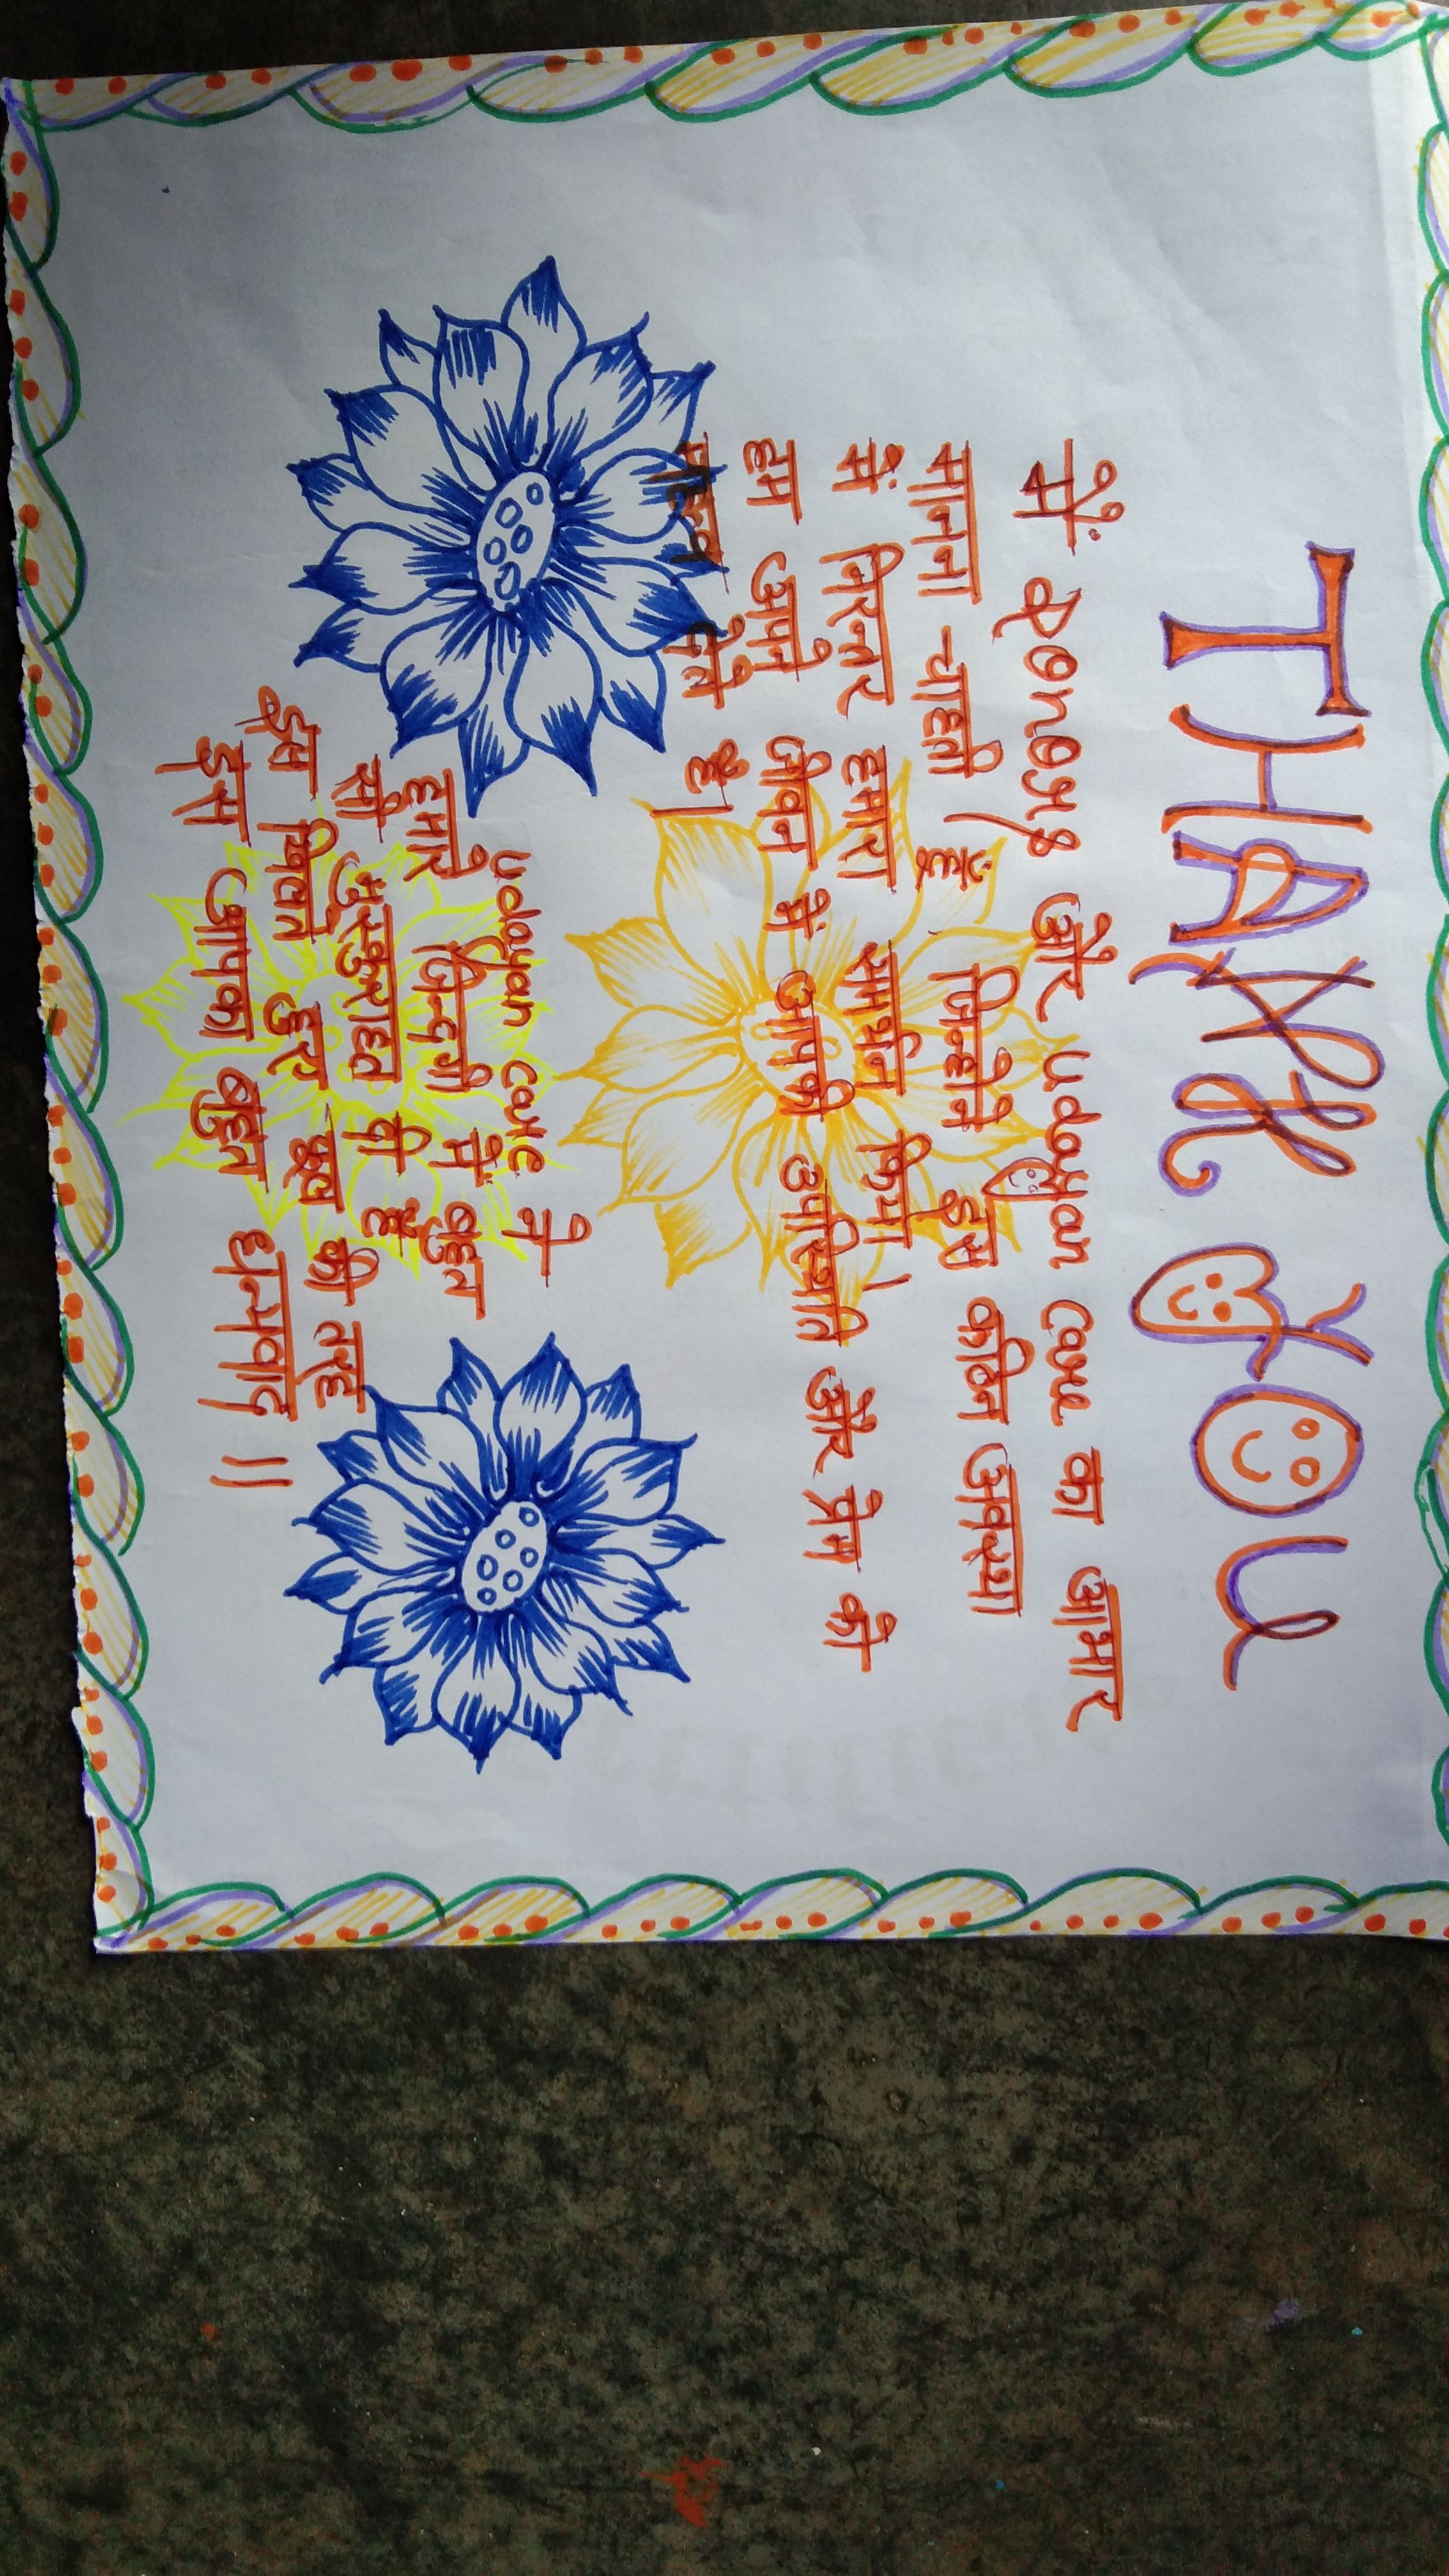 THANK YOU
मैं Donors और Udayan Care का आभार
मानना चाहती हूँ जिन्होंने इस कठिन अवस्था
में निरन्तर हमारा समर्थन किया।
हम अपने जीवन में आपकी उपस्थिति और प्रेम को
महत्व देते हैं।
Udayan Care ने
हमारे जिन्दगी में बहुत
सी मुस्कुराहट दी है
इस खिलते हुए फूल की तरह
इस आपका बहुत धन्यवाद ||